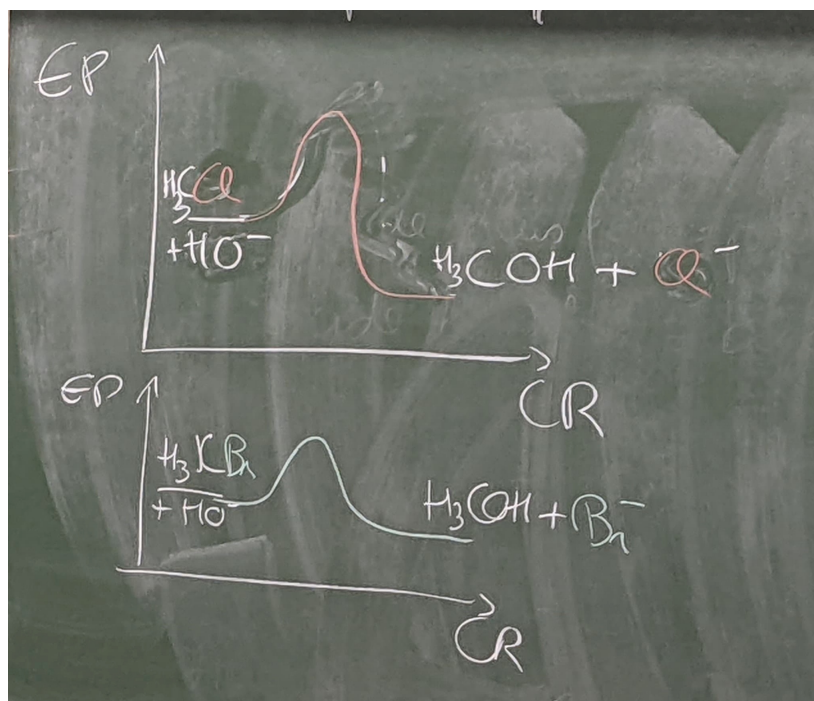 EP
H₃CCl
+HO⁻
H₃COH + Cl⁻
CR
EP
H₃CBr
+ HO⁻
H₃COH + Br⁻
CR